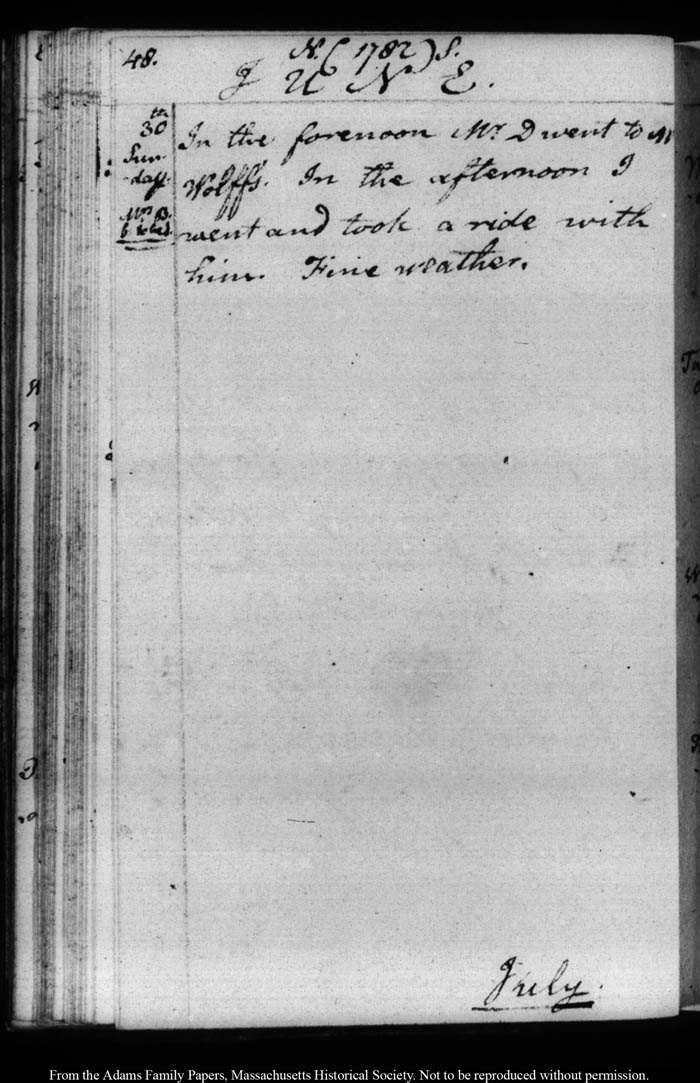 48.
N. (1782) S.
J U N E.
30th
Sun-
day.
In the forenoon Mr. D went to Mr
Wolff's. In the afternoon I
went and took a ride with
him. Fine weather.
July.
From the Adams Family Papers, Massachusetts Historical Society. Not to be reproduced without permission.